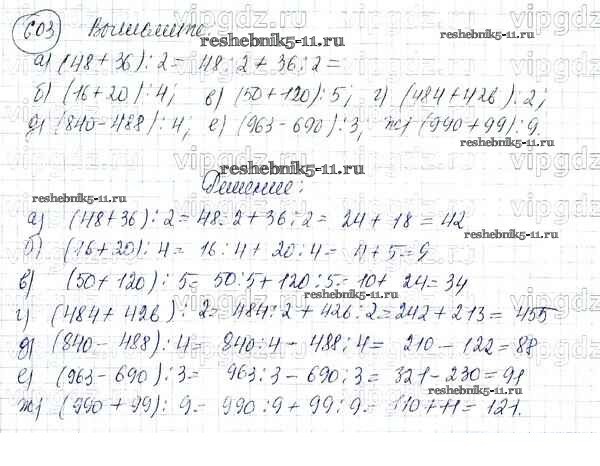 603 Выполните:
а) (48+36):2= 48:2+36:2=
б) (16+20):4; в) (50+120):5; г) (484+426):2;
д) (840-488):4; е) (963-690):3; ж) (990+99):9.
Решение:
а) (48+36):2=48:2+36:2= 24+18=42
б) (16+20):4= 16:4+20:4= 4+5=9
в) (50+120):5= 50:5+120:5= 10+24=34
г) (484+426):2=484:2+426:2=242+213=455
д) (840-488):4= 840:4-488:4= 210-122=88
е) (963-690):3= 963:3-690:3= 321-230=91
ж) (990+99):9= 990:9+99:9= 110+11=121.
reshebnik5-11.ru
reshebnik5-11.ru
reshebnik5-11.ru
reshebnik5-11.ru
reshebnik5-11.ru
reshebnik5-11.ru
reshebnik5-11.ru